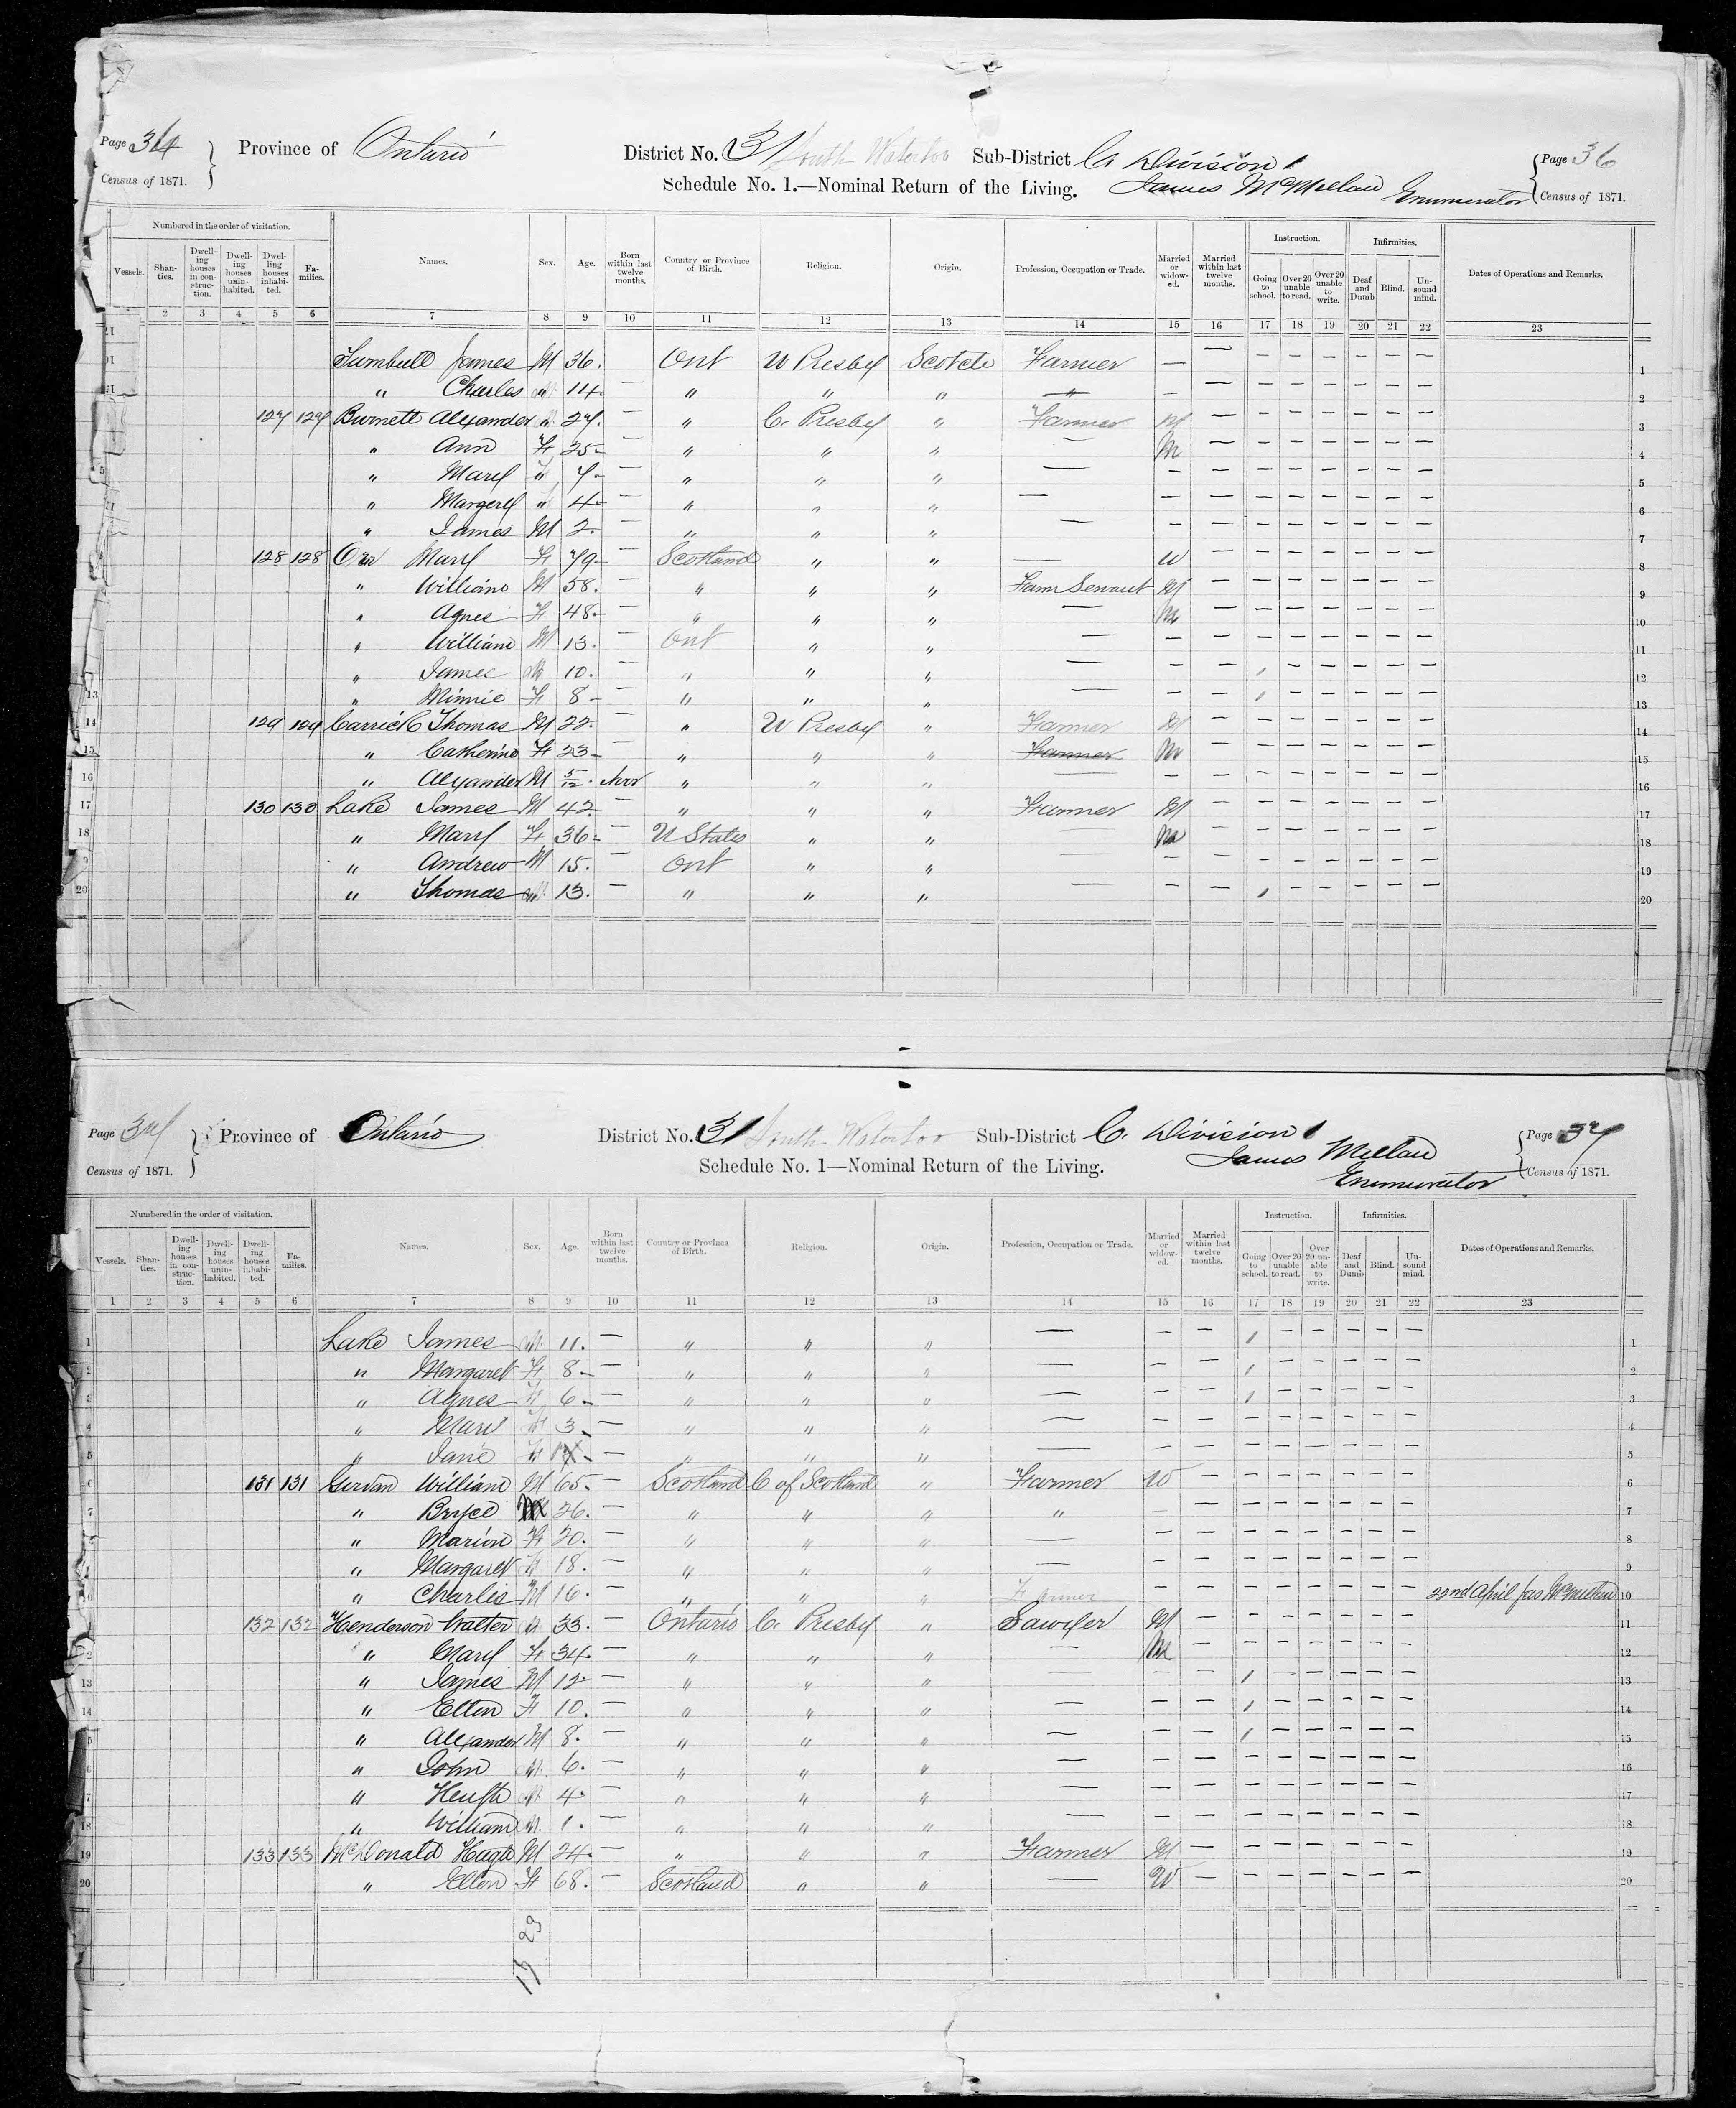 Page 36 Province of Ontario District No. 31 South Waterloo Sub-District C. Division 1 Page 36
Census of 1871. Schedule No. 1.—Nominal Return of the Living. James McMillan Enumerator Census of 1871.
Numbered in the order of visitation. Instruction. Infirmities.
Vessels. Shanties. Dwelling houses in construction. Dwelling houses uninhabited. Dwelling houses inhabited. Families. Names. Sex. Age. Born within last twelve months. Country or Province of Birth. Religion. Origin. Profession, Occupation or Trade. Married or widowed. Married within last twelve months. Going to school. Over 20 unable to read. Over 20 unable to write. Deaf and Dumb Blind. Unsound mind. Dates of Operations and Remarks.
2 3 4 5 6 7 8 9 10 11 12 13 14 15 16 17 18 19 20 21 22 23
Turnbull James M 36. Ont U Presby Scotch Farmer — — — — — — — — 1
" Charles M 14. — " " " — — — — — — — — — 2
127 127 Burnett Alexander M 27. — " C. Presby " Farmer M — — — — — — — 3
" Ann F 25 — " " " — M — — — — — — — 4
" Mary F 7 — " " " — — — — — — — — — 5
" Margery " 4 — " " " — — — — — — — — — 6
" James M 2. — " " " — — — — — — — — — 7
128 128 Orr Mary F 79 — Scotland " " — W — — — — — — — 8
" William M 58. — " " " Farm Servant M — — — — — — — 9
" Agnes F 48 — " " " — M — — — — — — — 10
" William M 13. — Ont " " — — — — — — — — — 11
" James M 10. — " " " — — — 1 — — — — — 12
" Minnie F 8 — " " " — — — 1 — — — — — 13
129 129 Carrick Thomas M 22. — " U Presby " Farmer M — — — — — — — 14
" Catherine F 23 — " " " Farmer M — — — — — — — 15
" Alexander M 5/12 Nov " " " — — — — — — — — — 16
130 130 Lake James M 42. — " " " Farmer M — — — — — — — 17
" Mary F 36 — U States " " — M — — — — — — — 18
" Andrew M 15. — Ont " " — — — — — — — — — 19
" Thomas M 13. — " " " — — — 1 — — — — — 20
Page 37 Province of Ontario District No. 31 South Waterloo Sub-District C. Division 1 Page 37
Census of 1871. Schedule No. 1—Nominal Return of the Living. James Millan Enumerator Census of 1871.
Numbered in the order of visitation. Instruction. Infirmities.
Vessels. Shanties. Dwelling houses in construction. Dwelling houses uninhabited. Dwelling houses inhabited. Families. Names. Sex. Age. Born within last twelve months. Country or Province of Birth. Religion. Origin. Profession, Occupation or Trade. Married or widowed. Married within last twelve months. Going to school. Over 20 unable to read. Over 20 unable to write. Deaf and Dumb Blind. Unsound mind. Dates of Operations and Remarks.
1 2 3 4 5 6 7 8 9 10 11 12 13 14 15 16 17 18 19 20 21 22 23
1 Lake James M 11. — " " " — — — 1 — — — — — 1
2 " Margaret F 8 — " " " — — — 1 — — — — — 2
3 " Agnes F 6 — " " " — — — 1 — — — — — 3
4 " Mary F 3 — " " " — — — — — — — — — 4
5 " Jane F — " " " — — — — — — — — — 5
6 131 131 Girvan William M 65 — Scotland C of Scotland " Farmer W — — — — — — — 6
7 " Bryce M 26. — " " " " — — — — — — — — 7
" Marion F 20. — " " " — — — — — — — — — 8
" Margaret F 18. — " " " — — — — — — — — — 9
" Charles M 16. — " " " Farmer — — — — — — — — 22nd April Jas McMillan 10
132 132 Henderson Walter M 33. — Ontario C. Presby " Sawyer M — — — — — — — 11
" Mary F 34. — " " " — M — — — — — — — 12
13 " James M 12 — " " " — — — 1 — — — — — 13
14 " Ellen F 10. — " " " — — — 1 — — — — — 14
" Alexander M 8. — " " " — — — 1 — — — — — 15
" John M 6. — " " " — — — — — — — — — 16
" Heugh M 4. — " " " — — — — — — — — — 17
18 " William M 1. — " " " — — — — — — — — — 18
19 133 133 McDonald Hugh M 24. — " " " Farmer M — — — — — — — 19
20 " Ellen F 68. — Scotland " " — W — — — — — — — 20